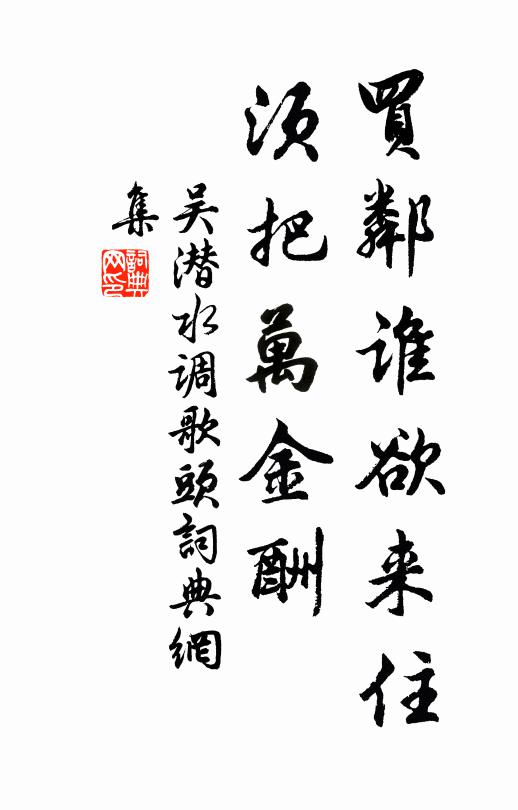 買鄰谁欲来住
须把萬金酬
吴潜水调歌頭詞典網
集
詞典网印